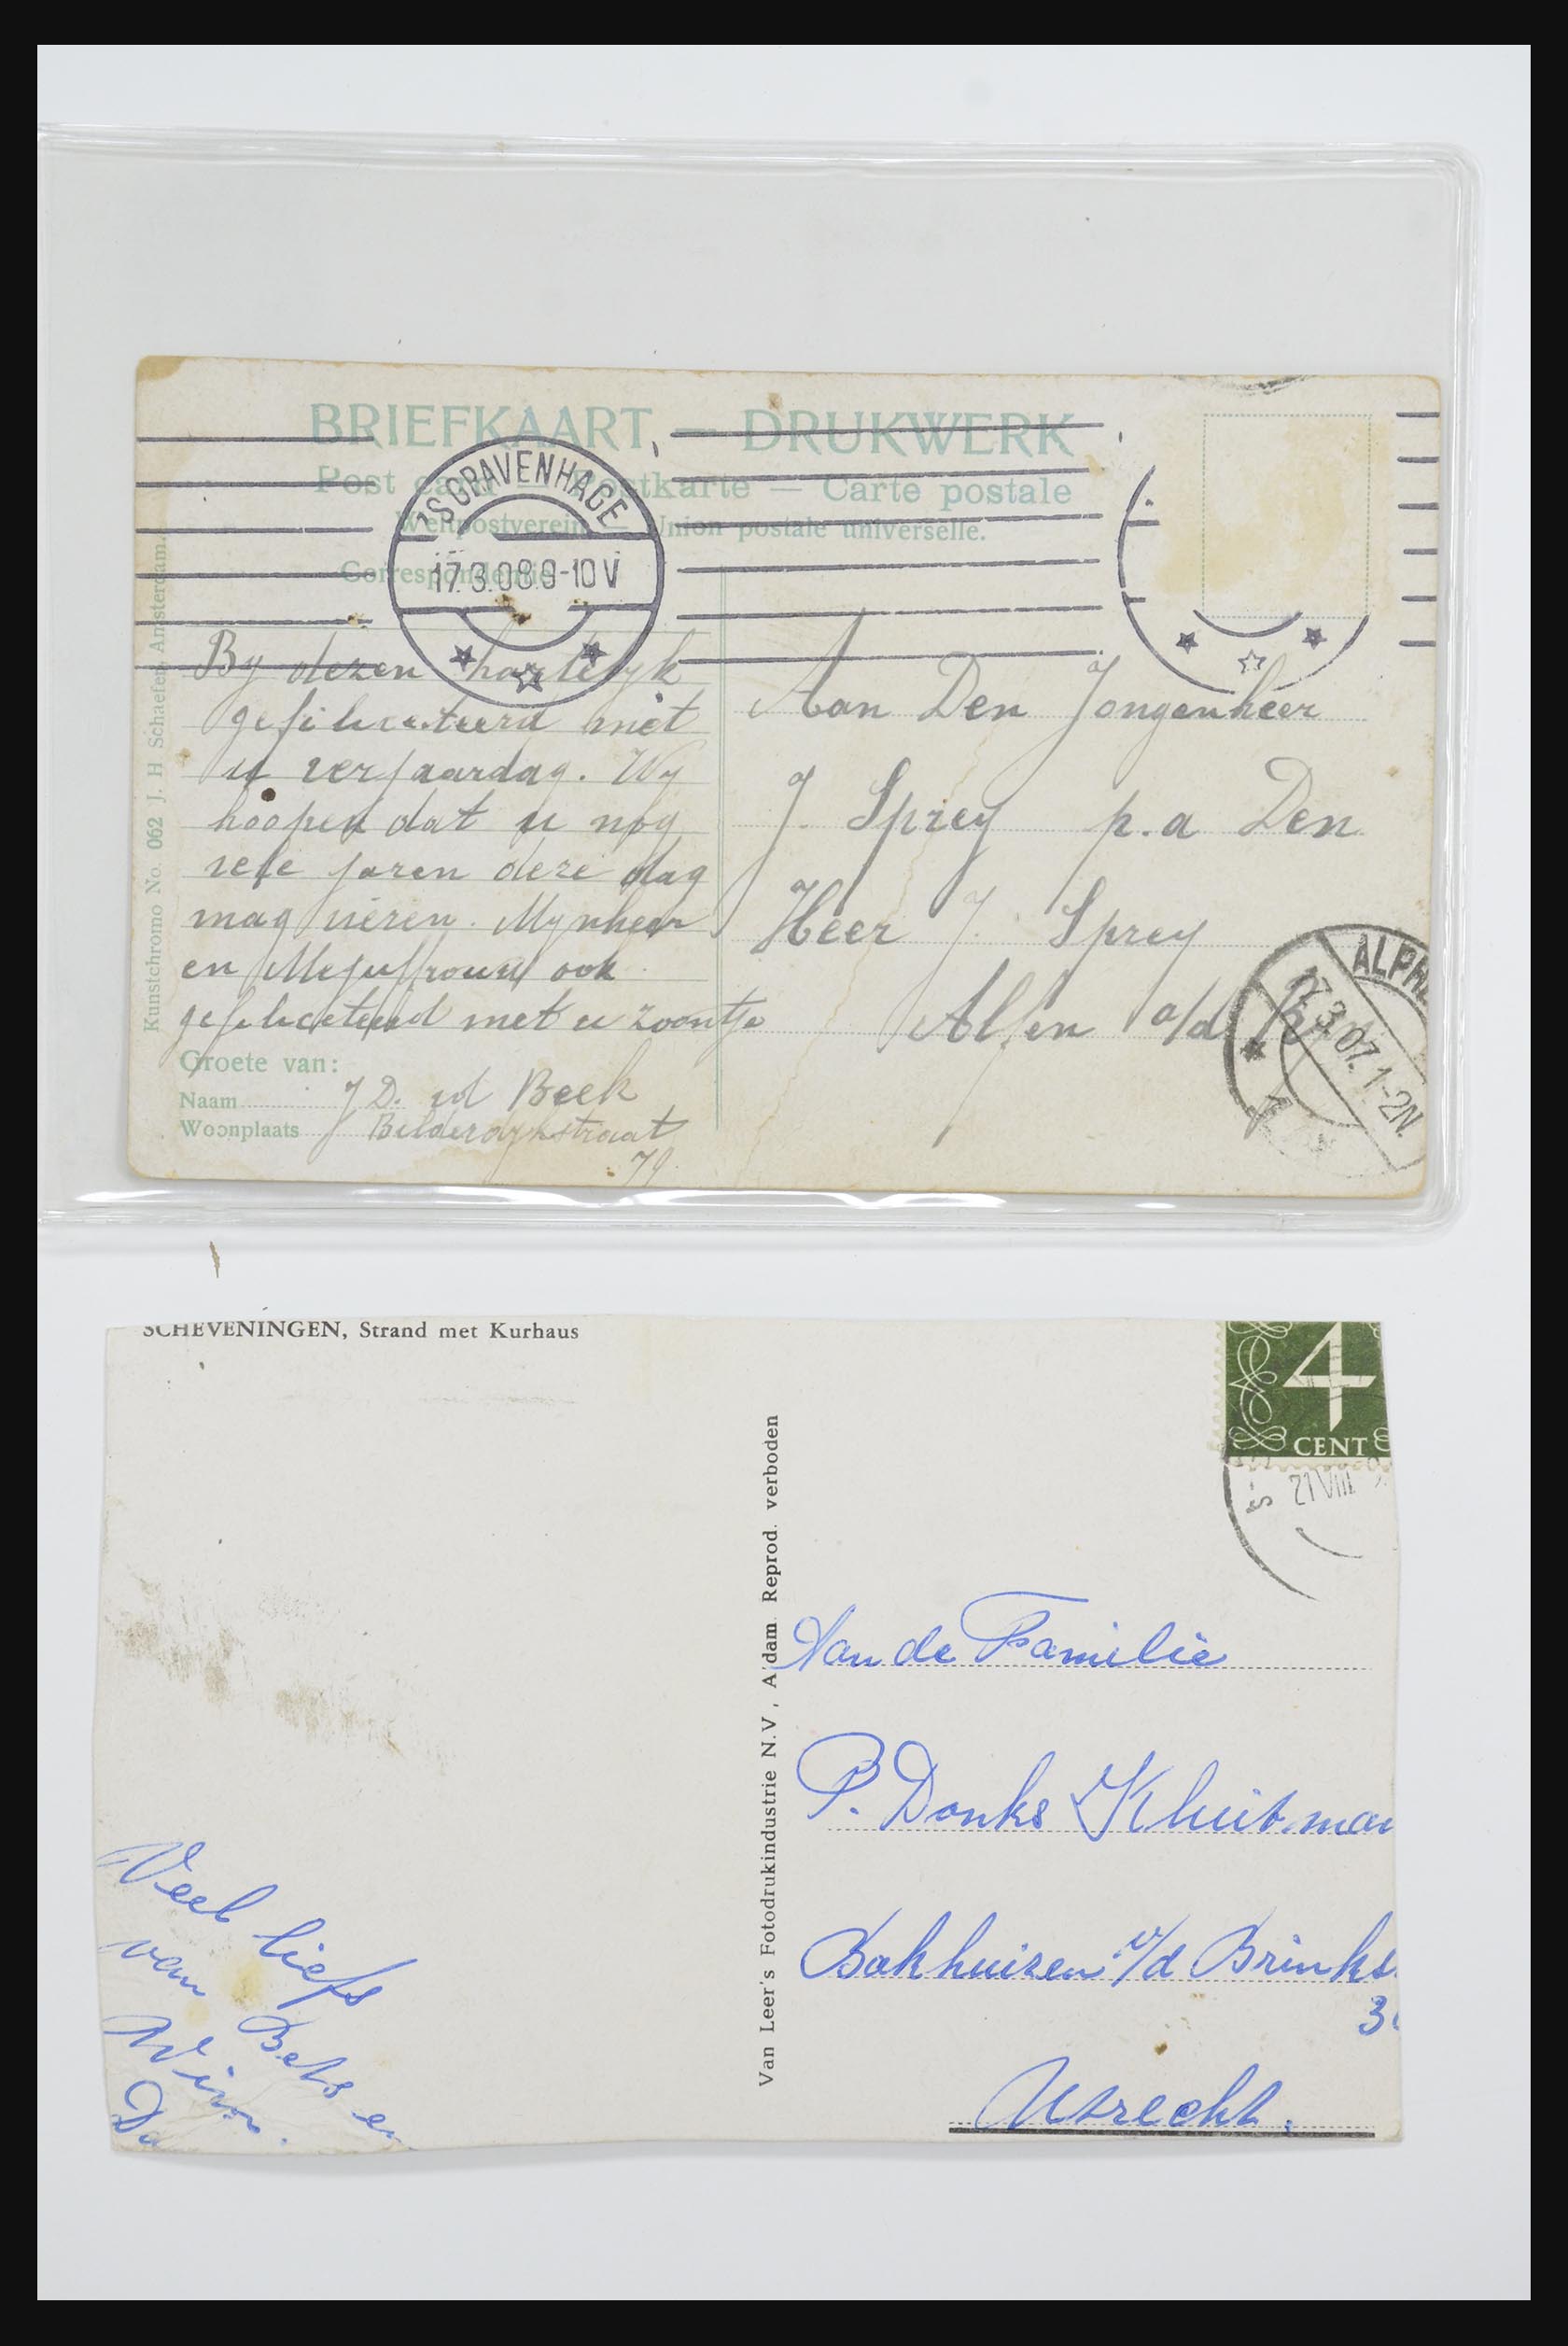 BRIEFKAART — DRUKWERK
Post card — Postkarte — Carte postale
Weltpostverein — Union postale universelle.
Correspondentie
'SGRAVENHAGE
17.3.08 8-10 V
Kunstchromo No. 062 J. H Schaefer, Amsterdam.
By dezen hartelyk
gefiliciteerd met
u verjaardag. Wy
hoopen dat u nog
vele jaren deze dag
mag vieren. Mynheer
en Mejuffrouw ook
gefeliciteerd met u zoontje
Groete van:
Naam J D. vd Beek
Woonplaats Bilderdijkstraat
79.
Aan Den Jongenheer
J. Sprey p.a Den
Heer J. Sprey
Alfen a/d R
ALPHE
17.3.07. 1-2N.
SCHEVENINGEN, Strand met Kurhaus
4
CENT
21 VIII
Van Leer's Fotodrukindustrie N.V., A'dam Reprod. verboden
Veel liefs
van Bets en
Wim.
Da
Aan de Familie
P. Donks Kluitman
Bakhuizen v/d Brinks
3
Utrecht.